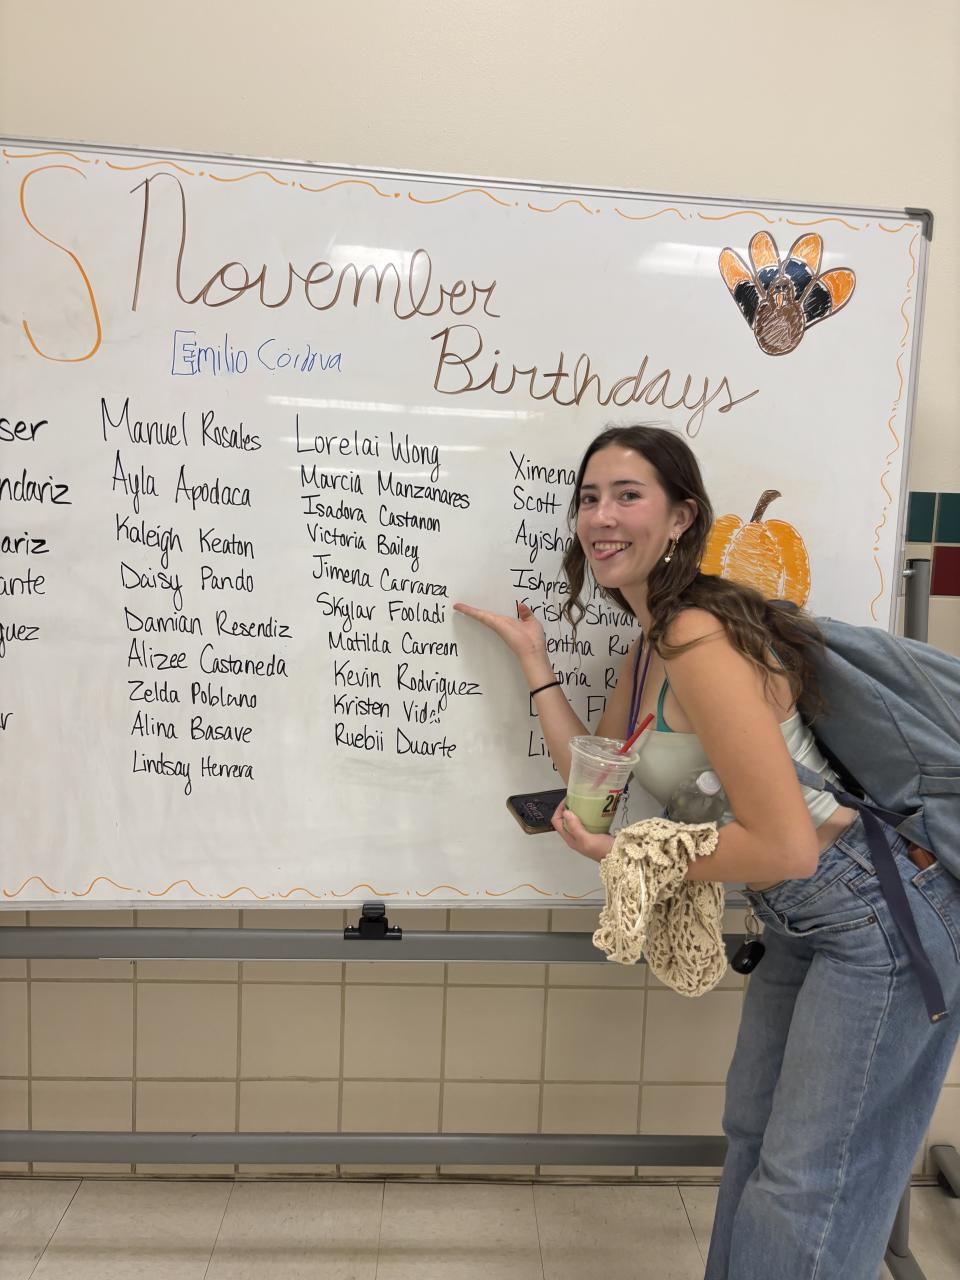 S November
Birthdays
Emilio Cordova
ser
ndariz
ariz
ante
guez
r
Manuel Rosales
Ayla Apodaca
Kaleigh Keaton
Daisy Pando
Damian Resendiz
Alizee Castaneda
Zelda Poblano
Alina Basave
Lindsay Herrera
Lorelai Wong
Marcia Manzanares
Isadora Castanon
Victoria Bailey
Jimena Carranza
Skylar Fooladi
Matilda Carreon
Kevin Rodriguez
Kristen Vidal
Ruebii Duarte
Ximena
Scott
Ayisha
Ishpre
Krish Shivar
entina Ru
toria R
D Fl
Lin